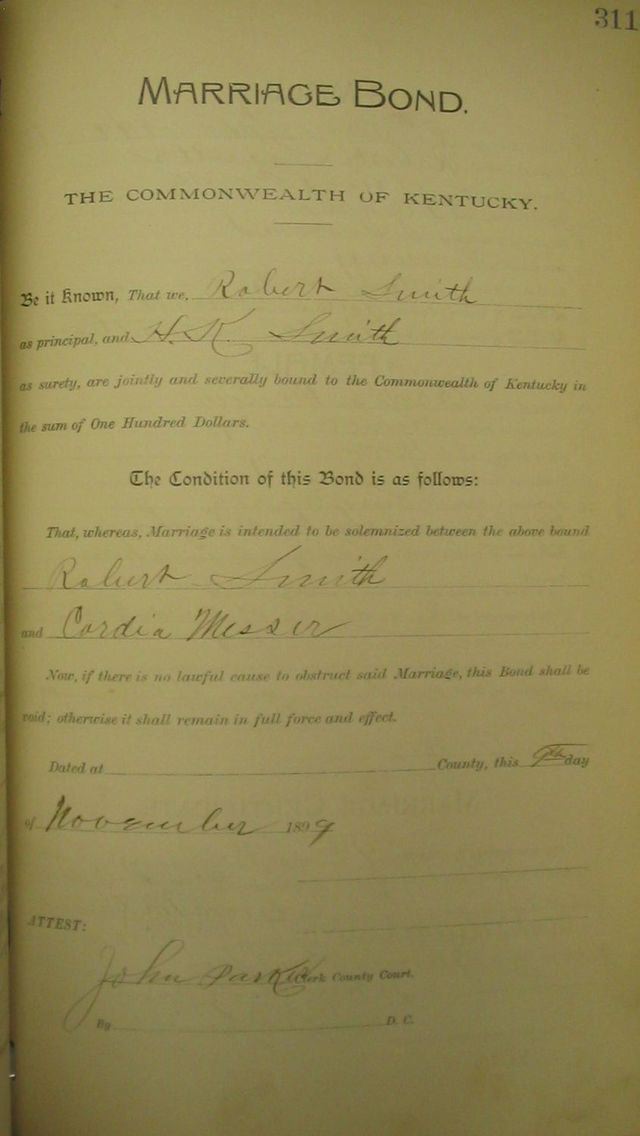 311
MARRIAGE BOND.
THE COMMONWEALTH OF KENTUCKY.
Be it Known, That we, Robert Smith
as principal, and H. K. Smith
as surety, are jointly and severally bound to the Commonwealth of Kentucky in
the sum of One Hundred Dollars.
The Condition of this Bond is as follows:
That, whereas, Marriage is intended to be solemnized between the above bound
Robert Smith
and Cordia Messer
Now, if there is no lawful cause to obstruct said Marriage, this Bond shall be
void; otherwise it shall remain in full force and effect.
Dated at County, this 9th day
of November 1899
ATTEST:
John Parker Clerk County Court.
By D. C.